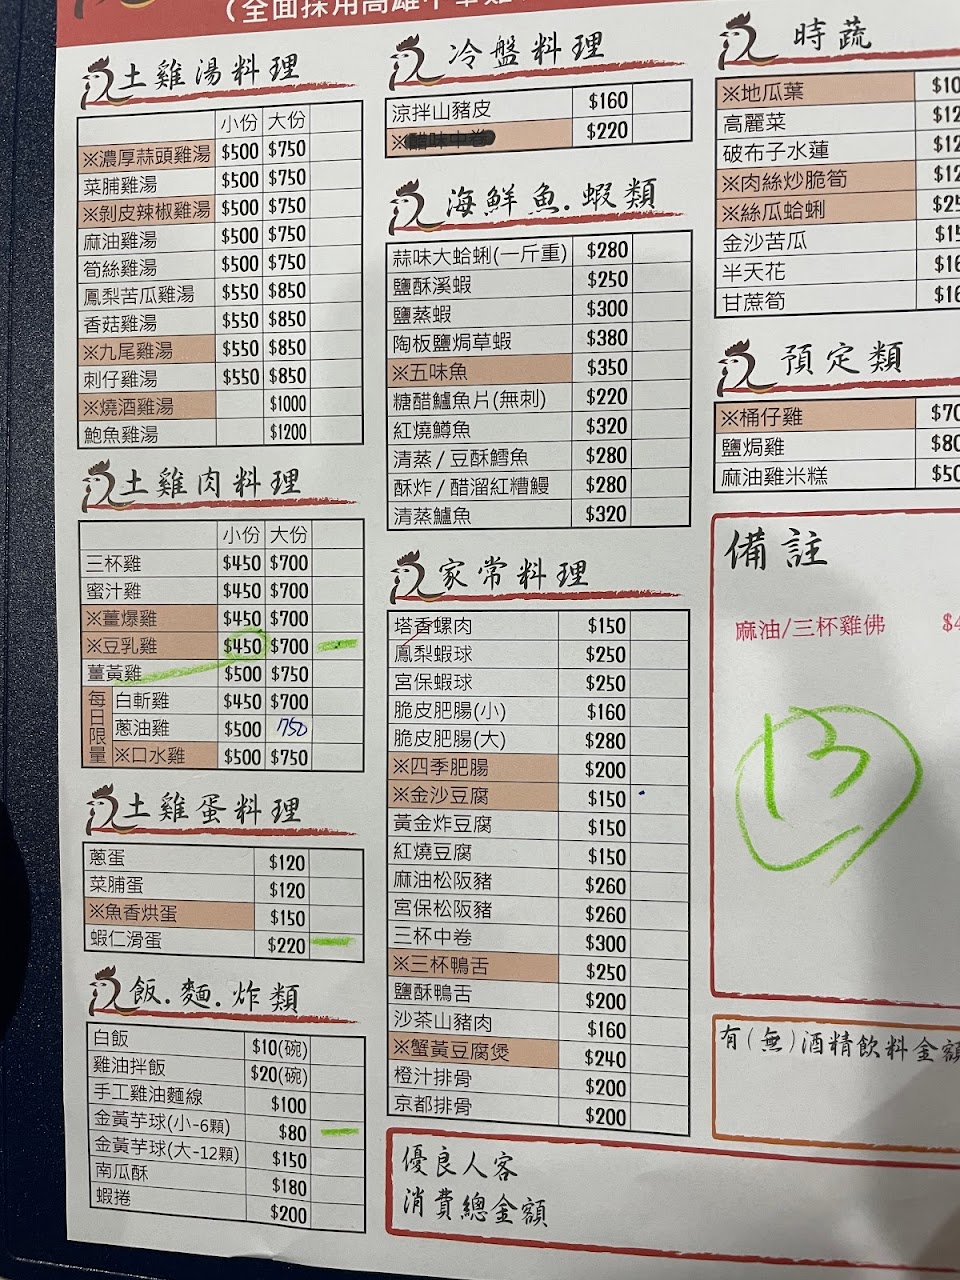 (全面採用高雄
土雞湯料理
小份 大份
※濃厚蒜頭雞湯 $500 $750
菜脯雞湯 $500 $750
※剝皮辣椒雞湯 $500 $750
麻油雞湯 $500 $750
筍絲雞湯 $500 $750
鳳梨苦瓜雞湯 $550 $850
香菇雞湯 $550 $850
※九尾雞湯 $550 $850
刺仔雞湯 $550 $850
※燒酒雞湯 $1000
鮑魚雞湯 $1200
土雞肉料理
小份 大份
三杯雞 $450 $700
蜜汁雞 $450 $700
※薑爆雞 $450 $700
※豆乳雞 $450 $700
薑黃雞 $500 $750
每日限量
白斬雞 $450 $700
蔥油雞 $500 750
※口水雞 $500 $750
土雞蛋料理
蔥蛋 $120
菜脯蛋 $120
※魚香烘蛋 $150
蝦仁滑蛋 $220
飯.麵.炸類
白飯 $10(碗)
雞油拌飯 $20(碗)
手工雞油麵線 $100
金黃芋球(小-6顆) $80
金黃芋球(大-12顆) $150
南瓜酥 $180
蝦捲 $200
冷盤料理
涼拌山豬皮 $160
※醋味中卷 $220
海鮮魚.蝦類
蒜味大蛤蜊(一斤重) $280
鹽酥溪蝦 $250
鹽蒸蝦 $300
陶板鹽焗草蝦 $380
※五味魚 $350
糖醋鱸魚片(無刺) $220
紅燒鱒魚 $320
清蒸/豆酥鱈魚 $280
酥炸/醋溜紅糟鰻 $280
清蒸鱸魚 $320
家常料理
塔香螺肉 $150
鳳梨蝦球 $250
宮保蝦球 $250
脆皮肥腸(小) $160
脆皮肥腸(大) $280
※四季肥腸 $200
※金沙豆腐 $150
黃金炸豆腐 $150
紅燒豆腐 $150
麻油松阪豬 $260
宮保松阪豬 $260
三杯中卷 $300
※三杯鴨舌 $250
鹽酥鴨舌 $200
沙茶山豬肉 $160
※蟹黃豆腐煲 $240
橙汁排骨 $200
京都排骨 $200
優良人客
消費總金額
時蔬
※地瓜葉 $10
高麗菜 $12
破布子水蓮 $12
※肉絲炒脆筍 $12
※絲瓜蛤蜊 $25
金沙苦瓜 $15
半天花 $16
甘蔗筍 $16
預定類
※桶仔雞 $70
鹽焗雞 $80
麻油雞米糕 $50
備註
麻油/三杯雞佛 $4
13
有(無)酒精飲料金額